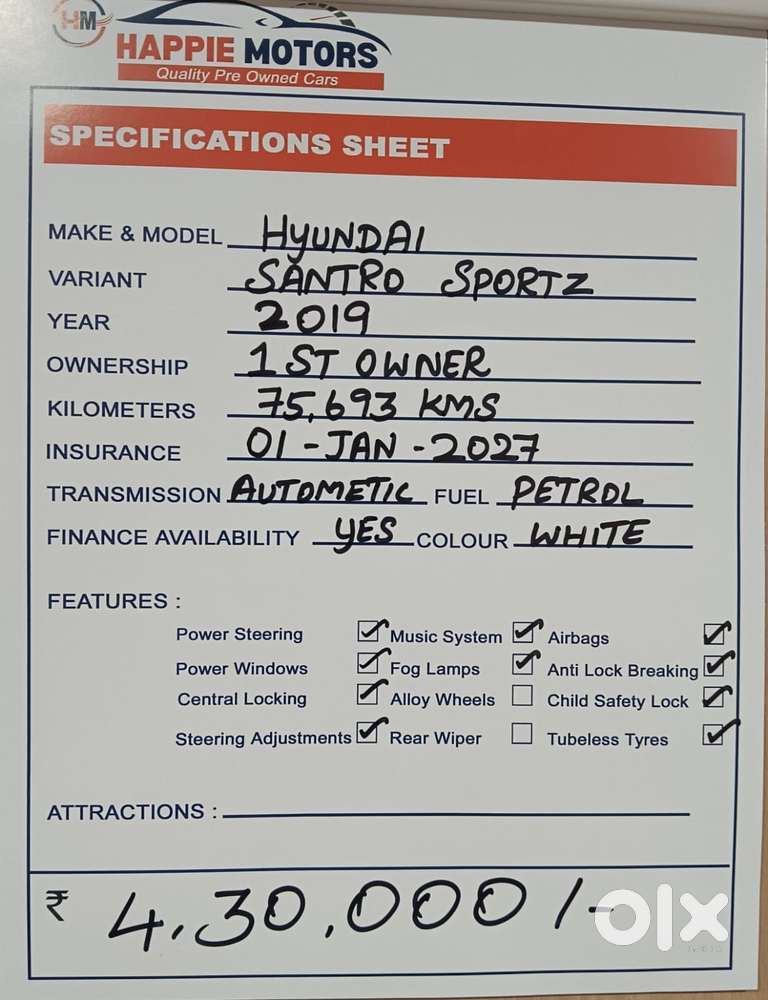 HM
HAPPIE MOTORS
Quality Pre Owned Cars
SPECIFICATIONS SHEET
MAKE & MODEL HYUNDAI
VARIANT SANTRO SPORTZ
YEAR 2019
OWNERSHIP 1 ST OWNER
KILOMETERS 75,693 KMS
INSURANCE 01-JAN-2027
TRANSMISSION AUTOMETIC FUEL PETROL
FINANCE AVAILABILITY YES COLOUR WHITE
FEATURES :
Power Steering Music System Airbags
Power Windows Fog Lamps Anti Lock Breaking
Central Locking Alloy Wheels Child Safety Lock
Steering Adjustments Rear Wiper Tubeless Tyres
ATTRACTIONS :
₹ 4,30,000/-
olx